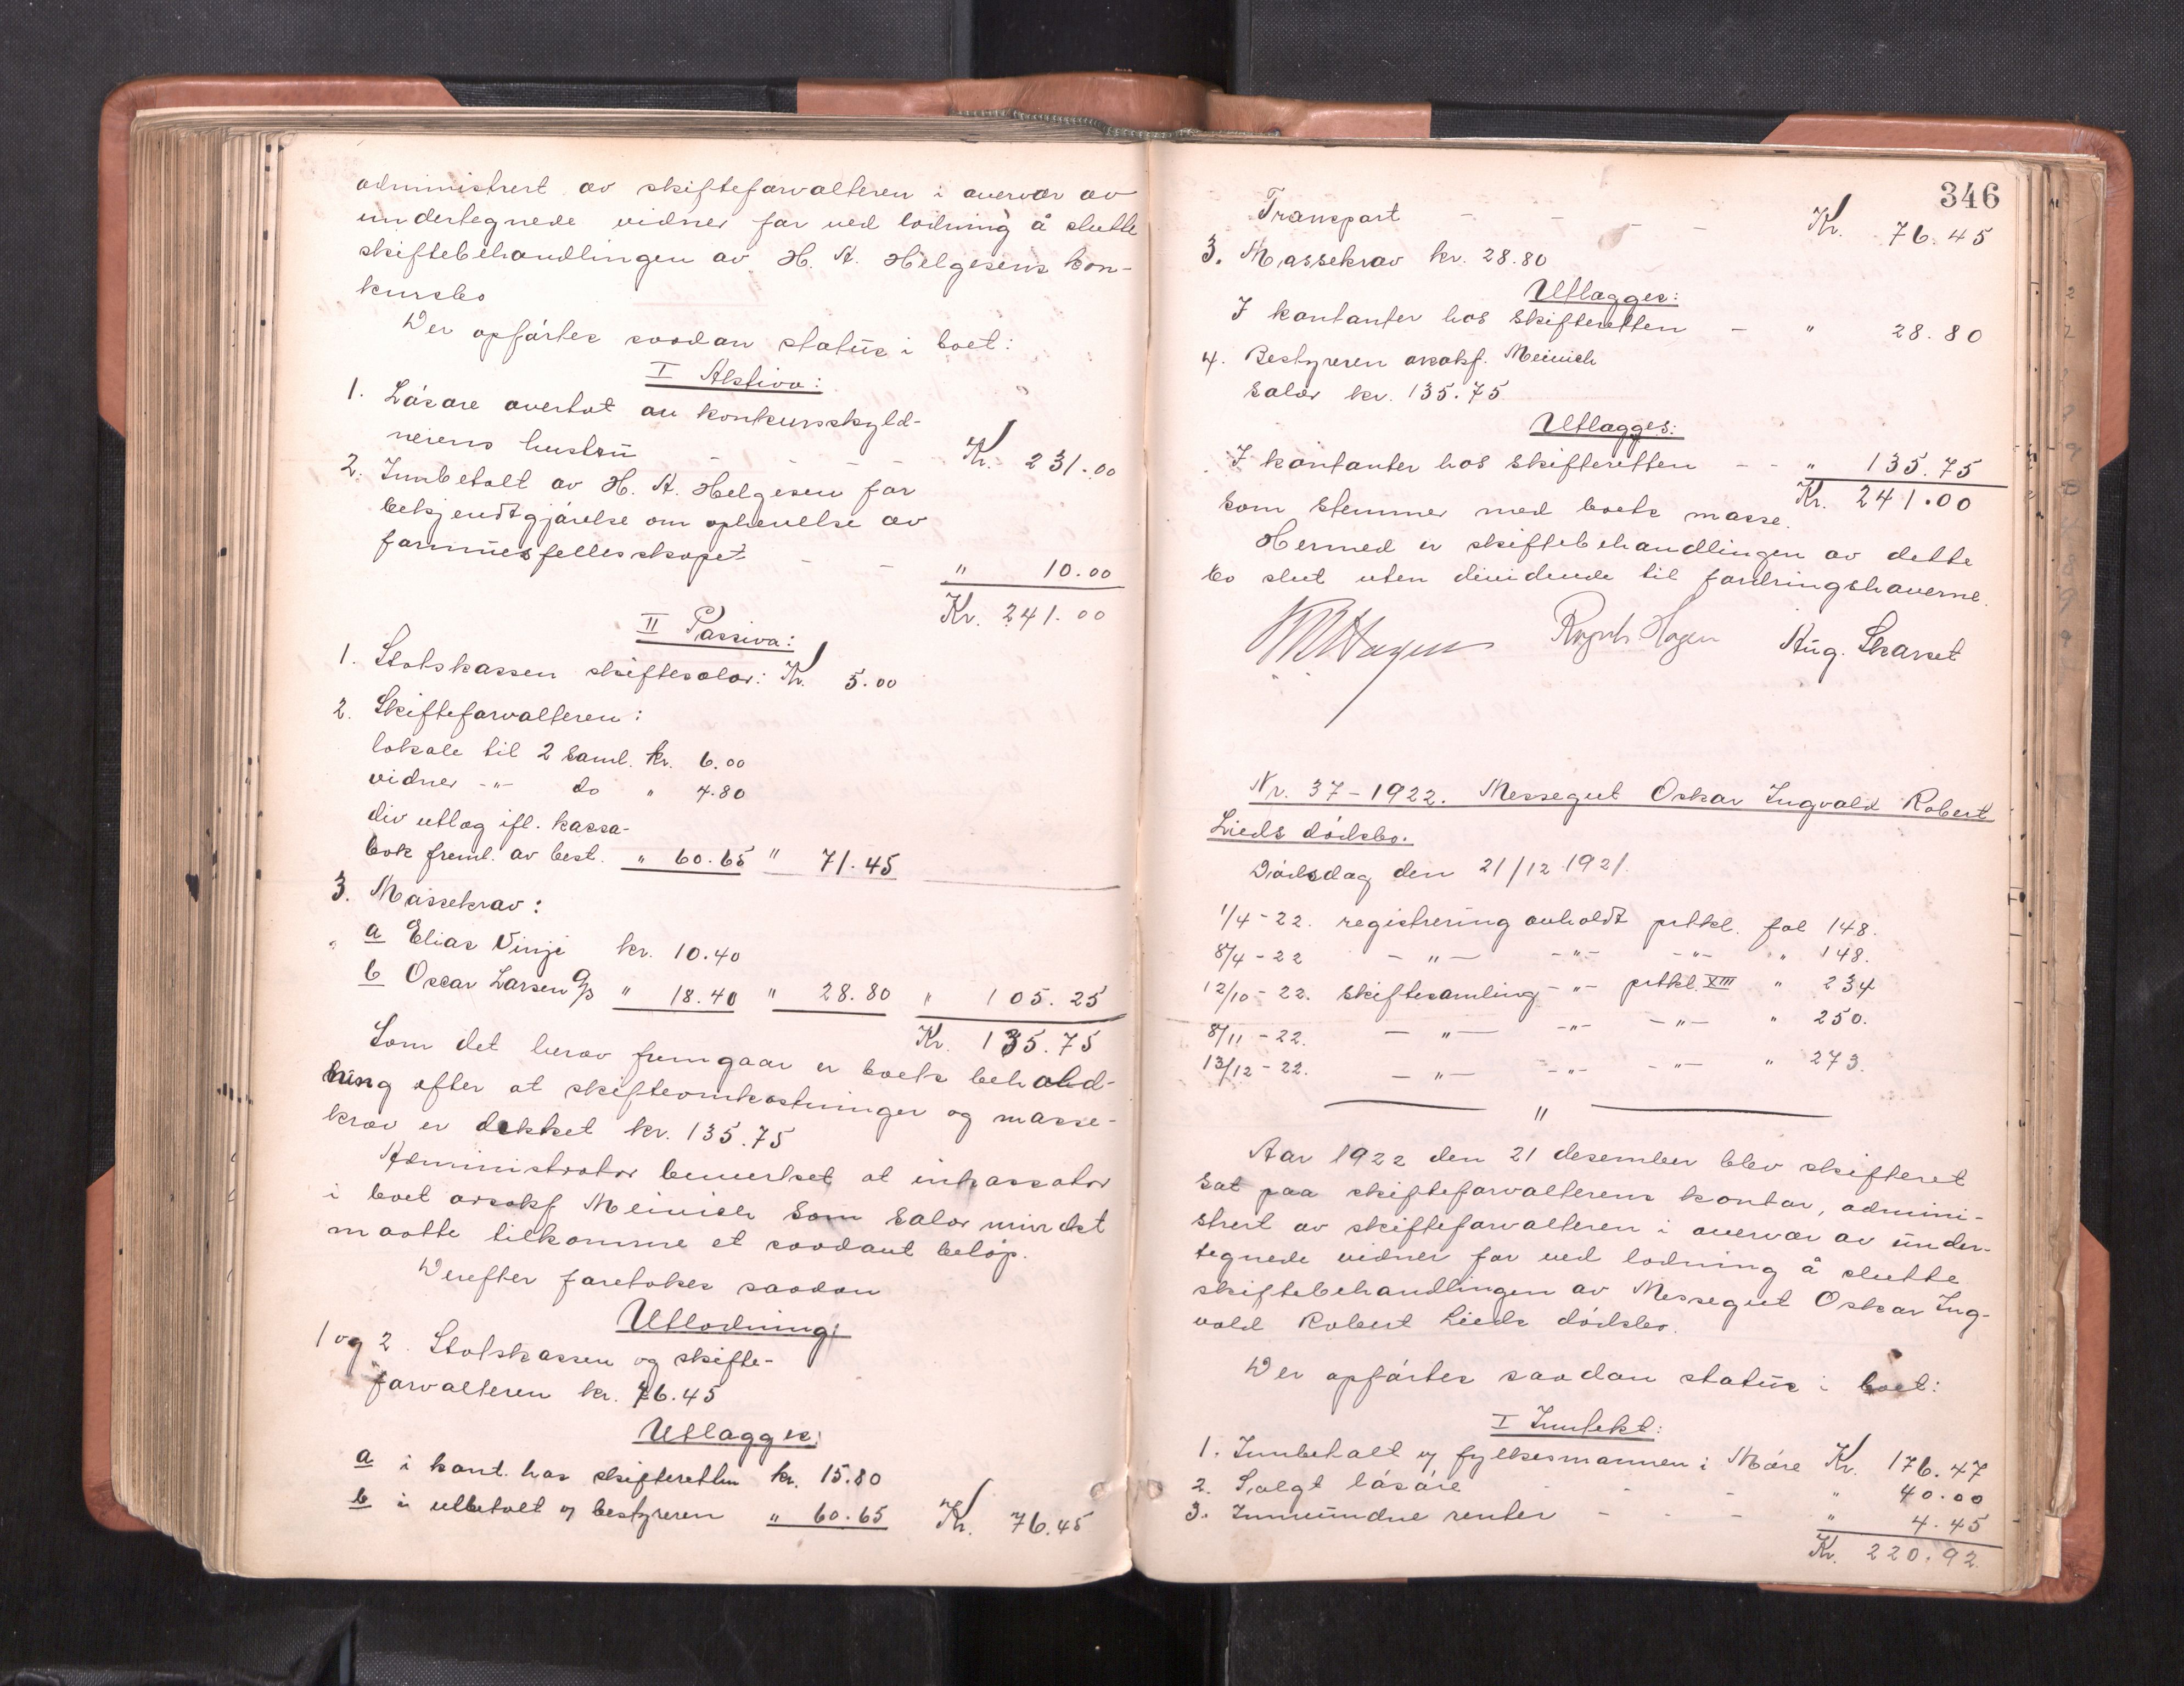 administrert av skifteforvalteren i overvær av
undertegnede vidner for ved lodning å slutte
skiftebehandlingen av H. A. Helgesens kon-
kursbo
Der opførtes saadan status i boet:
I Aktiva:
1. Løsøre overtat av konkursskyld-
nerens hustru - - - - Kr. 231.00
2. Innbetalt av H. A. Helgesen for
bekjendtgjørelse om ophevelse av
formuesfellesskapet - - " 10.00
Kr. 241.00
II Passiva:
1. Statskassen skiftesalær: Kr. 5.00
2. Skifteforvalteren:
lokale til 2 saml. kr. 6.00
vidner -"- do " 4.80
div utlæg ifl. kassa-
bok freml. av best. " 60.65 " 71.45
3. Massekrav:
a Elias Vinje kr. 10.40
b Oscar Larsen A/S " 18.40 " 28.80 " 105.25
Kr. 135.75
Som det herav fremgaar er boets behold-
ning efter at skifteomkostninger og masse-
krav er dekket kr. 135.75
Administrator bemerket at inkassator
i boet o.r.sakf Meinich som salær mindst
maatte tilkomme et saadant beløp.
Derefter foretokes saadan
Utlodning:
1 og 2. Statskassen og skifte-
forvalteren kr. 76.45
Utlægges:
a i kont. hos skifteretten kr. 15.80
b i utbetalt av bestyreren " 60.65 Kr. 76.45
346
Transport - - - - Kr. 76.45
3. Massekrav kr. 28.80
Utlægges:
I kontanter hos skifteretten - " 28.80
4. Bestyreren o.r.sakf. Meinich
salær kr. 135.75
Utlægges:
I kontanter hos skifteretten - - " 135.75
Kr. 241.00
som stemmer med boets masse.
Hermed er skiftebehandlingen av dette
bo slut uten dividende til fordringshaverne.
Hagen Ragnh. Hagen Aug. Skarset
Nr. 37-1922. Messegut Oskar Ingvald Robert
Lieds dødsbo.
Dødsdag den 21/12 1921.
1/4-22. registrering avholdt prtkl. fol 148.
8/4-22 -"- -"- -"- " 148.
12/10-22. skiftesamling -"- prtkl. XIII " 234
8/11-22. -"- -"- -"- " 250.
13/12-22. -"- -"- -"- " 273.
"
Aar 1922 den 21 desember blev skifteret
sat paa skifteforvalterens kontor, admini-
strert av skifteforvalteren i overvær av under-
tegnede vidner for ved lodning å slutte
skiftebehandlingen av Messegut Oskar Ing-
vald Robert Lieds dødsbo.
Der opførtes saadan status i boet:
I Inntekt:
1. Innbetalt av fylkesmannen i Møre Kr. 176.47
2. Solgt løsøre - - - " 40.00
3. Innvundne renter - - - " 4.45
Kr. 220.92.